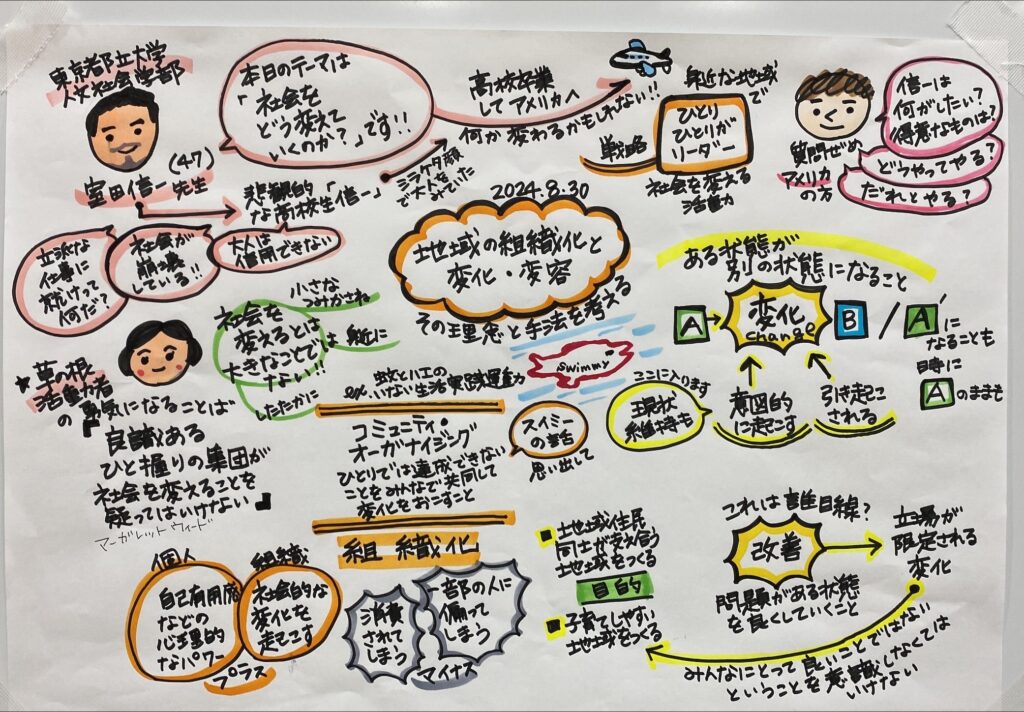 東京都立大学
人文社会学部
室田信一先生
(47)
本日のテーマは
「社会を
どう変えて
いくのか？」です!!
悲観的
な高校生「信一」
シラケタ顔
で大人をみていた
立派な
仕事に
就けって
何だ？
社会が
崩壊
している!!
大人は
信用できない
高校卒業
してアメリカへ
何か変わるかもしれない!!
身近な地域
で
戦略
ひとり
ひとりが
リーダー
社会を変える
活動力
質問ぜめ
アメリカ
の方
信一は
何がしたい？
得意なものは？
どうやってやる？
だれとやる？
2024.8.30
地域の組織化と
変化・変容
その理念と手法を考える
小さな
つみかさね
社会を
変えるとは
大きなことで
はない!!
身近に
したたかに
★草の根
活動者
の勇気になることば
「良識ある
ひと握りの集団が
社会を変えることを
疑ってはいけない」
マーガレットウィード
ex. 蚊とハエの
いない生活実践運動
コミュニティ・
オーガナイジング
ひとりでは達成できない
ことをみんなで共同して
変化をおこすこと
Swimmy
スイミー
の童話
思い出して
ある状態が
別の状態になること
A
変化
change
B / A'に
なることも
時に
Aのままも
ここに入ります
現状
維持も
意図的
に起こす
引き起こ
される
組織化
個人
自己有用感
などの
心理的
なパワー
組織
社会的な
変化を
起こす
プラス
消費
されて
しまう
一部の人に
偏って
しまう
マイナス
地域住民
同士が支え合う
地域をつくる
目的
子育てしやすい
地域をつくる
これは誰目線？
改善
問題がある状態
を良くしていくこと
立場が
限定される
変化
みんなにとって良いことではない
ということを意識しなくては
いけない